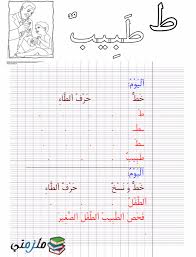 ط
طَبِيبٌ
اَلْيَوْمُ:
خَطٌّ حَرْفُ الطَّاءِ
ط . . . . . .
ـط . . . . . .
ـطـ . . . . . .
طَبِيبٌ . . .
اَلْيَوْمُ:
خَطٌّ وَ نَسْخٌ حَرْفُ الطَّاءِ
الطِّفْلُ . . .
فَحَصَ الطَّبِيبُ الطِّفْلَ الصَّغِيرَ
ملزمتي